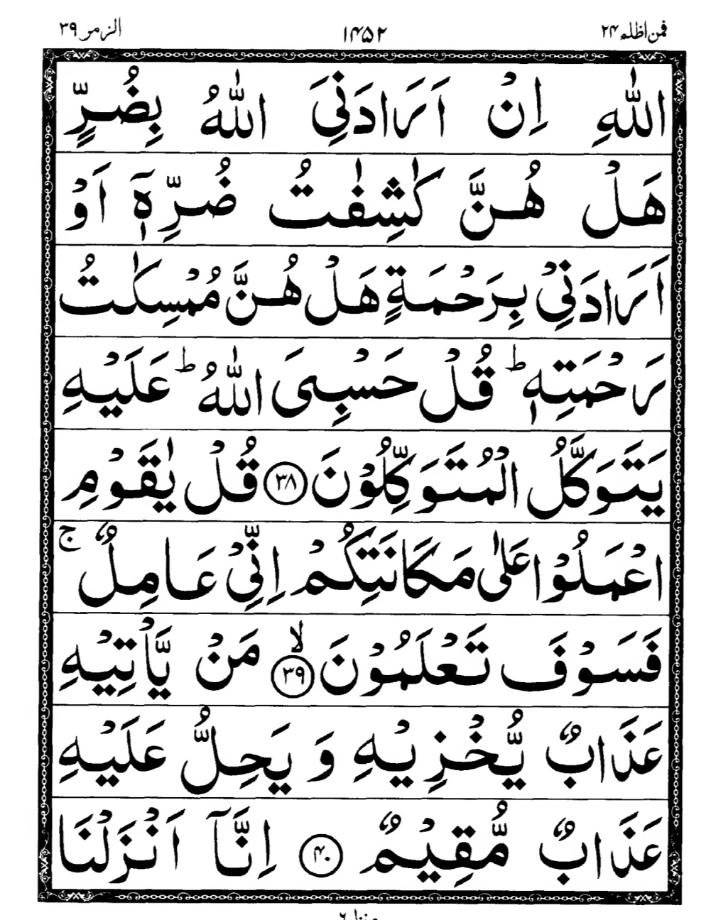 فمن اظلم ۲۴ ۱۴۵۲ الزمر ۳۹
اللّٰهِ اِنْ اَرَادَنِیَ اللّٰهُ بِضُرٍّ
هَلْ هُنَّ كٰشِفٰتُ ضُرِّهٖۤ اَوْ
اَرَادَنِیْ بِرَحْمَةٍ هَلْ هُنَّ مُمْسِكٰتُ
رَحْمَتِهٖ ؕ قُلْ حَسْبِیَ اللّٰهُ ؕ عَلَیْهِ
یَتَوَكَّلُ الْمُتَوَكِّلُوْنَ ﴿۳۸﴾ قُلْ یٰقَوْمِ
اعْمَلُوْا عَلٰی مَكَانَتِكُمْ اِنِّیْ عَامِلٌ ۚ
فَسَوْفَ تَعْلَمُوْنَ ۙ﴿۳۹﴾ مَنْ یَّاْتِیْهِ
عَذَابٌ یُّخْزِیْهِ وَ یَحِلُّ عَلَیْهِ
عَذَابٌ مُّقِیْمٌ ﴿۴۰﴾ اِنَّاۤ اَنْزَلْنَا
منزل ۶